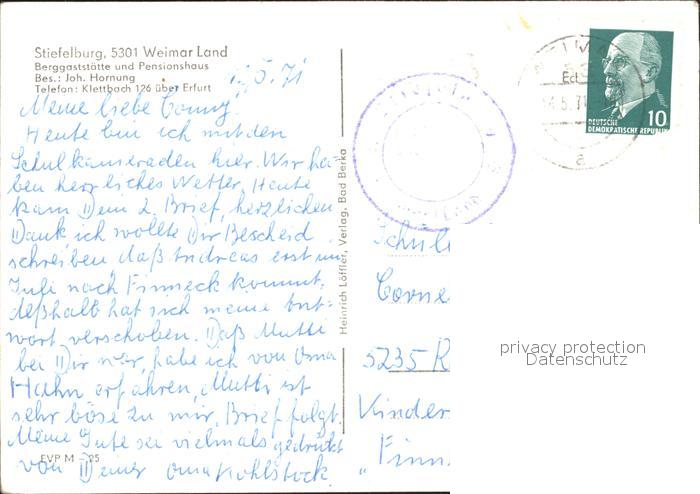 Stiefelburg, 5301 Weimar Land
Berggaststätte und Pensionshaus
Bes.: Joh. Hornung
Telefon: Klettbach 126 über Erfurt
5. 71
Meine liebe Conny,
Heute bin ich mit den
Schulkameraden hier. Wir ha-
ben herrliches Wetter. Heute
kam Dein 2. Brief, herzlichen
Dank ich wollte Dir Bescheid
schreiben daß Andreas erst im
Juli nach Finneck kommt,
deßhalb hat sich meine Ant-
wort verschoben. Daß Mutti
bei Dir war, habe ich von Oma
Hahn erfahren, Mutti ist
sehr böse zu mir, Brief folgt.
Meine Gute sei vielmals gedrückt
von Deiner Oma Kohlstock.
EVP M —,25
Heinrich Löffler, Verlag, Bad Berka
WEIMAR
14.5.71
a
10
DEUTSCHE
DEMOKRATISCHE REPUBLIK
Schül
Corne
5235 R
Kinder
„Finn
privacy protection
Datenschutz